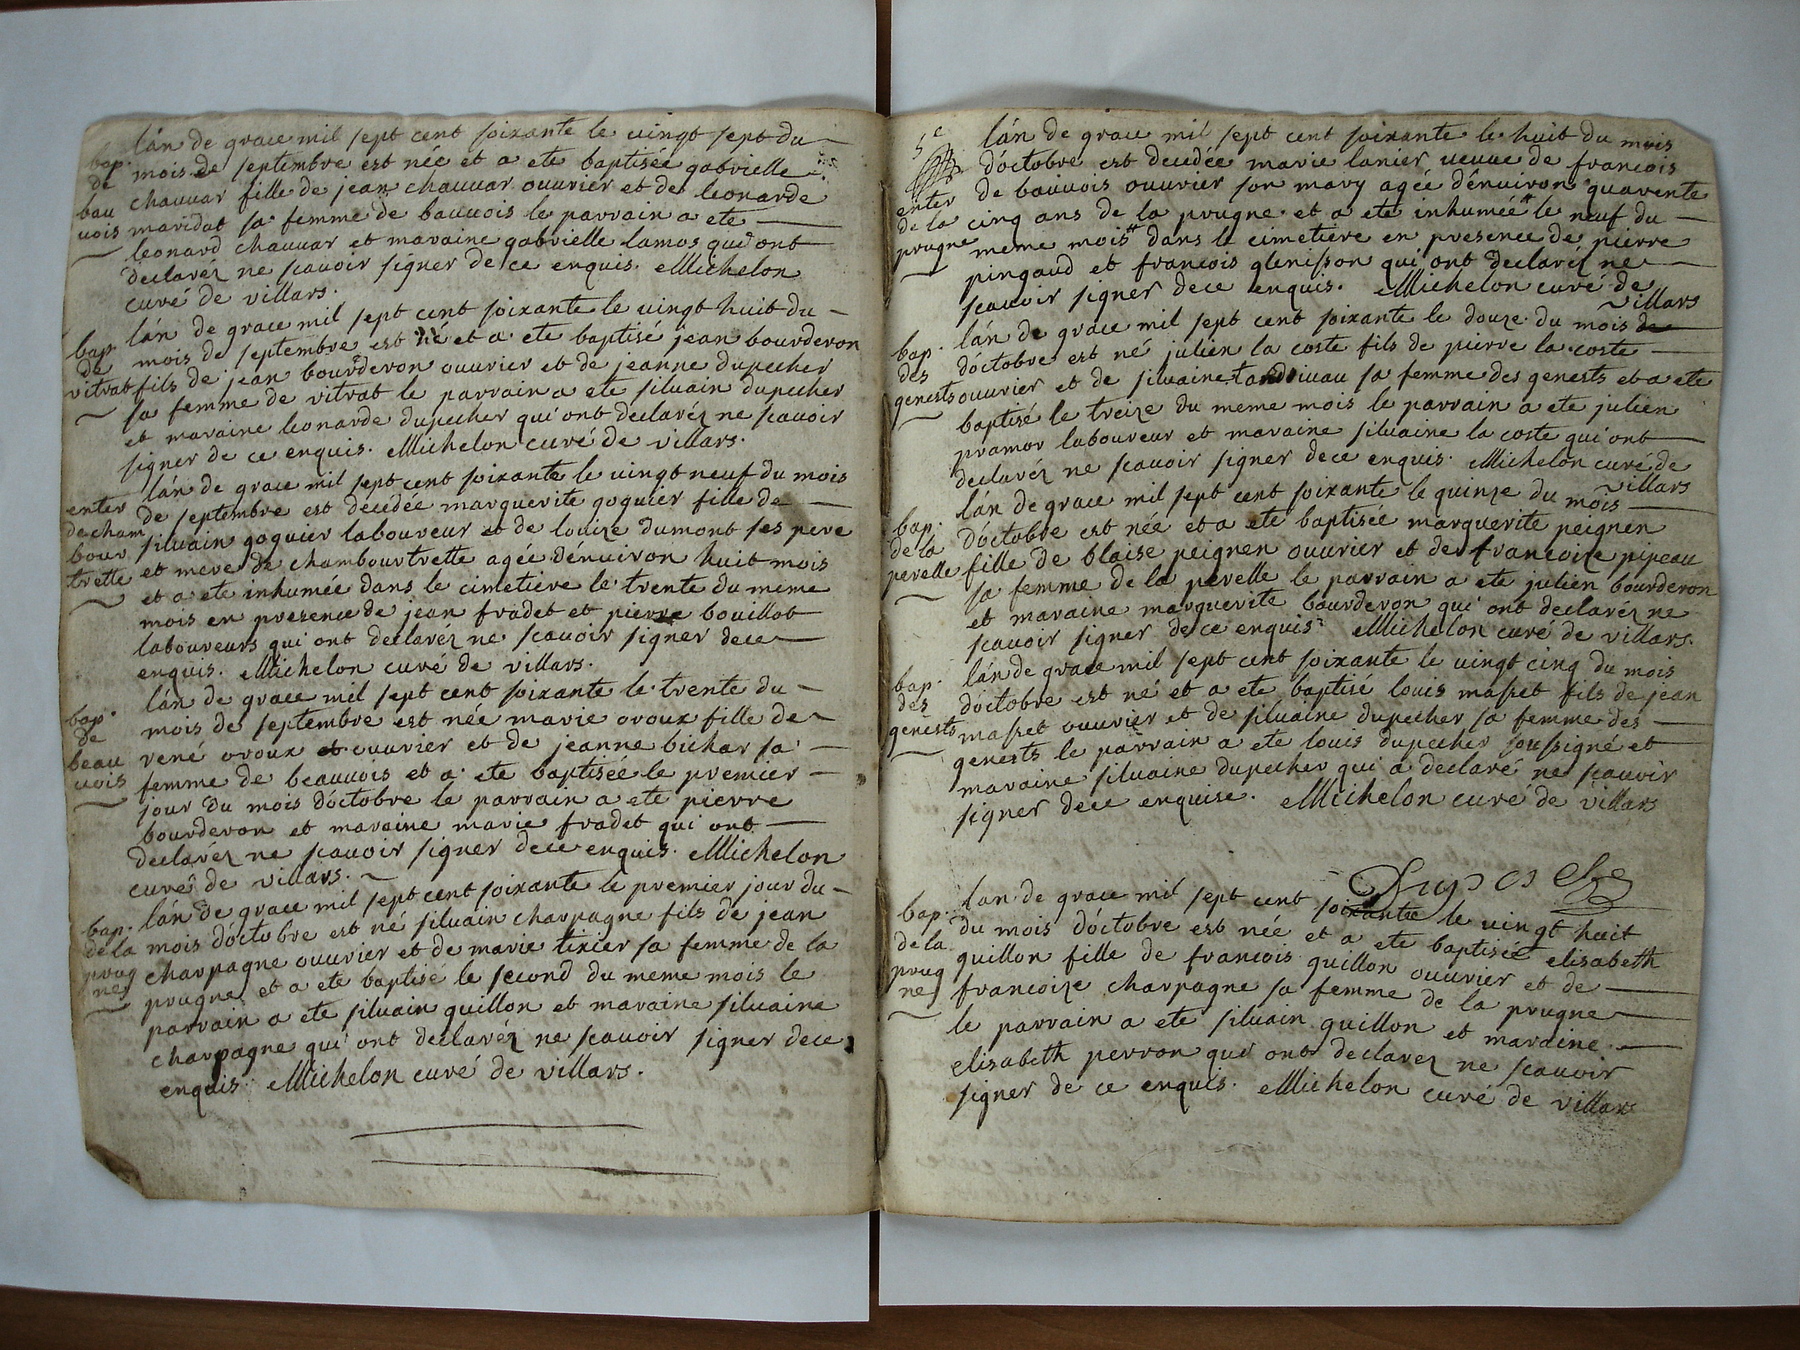 lán de grace mil sept cent soixante le vingt sept du
bap. de bauuois
mois de septembre est née et a ete baptisée gabrielle
chauuar fille de jean chauuar ouurier et de leonarde
maridat sa femme de bauuois le parrain a ete
leonard chauuar et maraine gabrielle lamos qui ont
declarez ne scauoir signer de ce enquis. Michelon
curé de villars.
lán de grace mil sept cent soixante le vingt huit du
bap. de vitrat
mois de septembre est né et a ete baptisé jean bourderon
fils de jean bourderon ouurier et de jeanne dupecher
sa femme de vitrat le parrain a ete siluain dupecher
et maraine leonarde dupecher qui ont declaréz ne scauoir
signer de ce enquis. Michelon curé de villars.
lán de grace mil sept cent soixante le vingt neuf du mois
enter de chambourtrette
de septembre est decedée marguerite goguier fille de
siluain goguier laboureur et de louize dumont ses pere
et mere de chambourtrette agée dénuiron huit mois
et a ete inhumée dans le cimetiere le trente du meme
mois en presence de jean fradet et pierre bouillot
laboureurs qui ont declarez ne scauoir signer dece
enquis. Michelon curé de villars.
lán de grace mil sept cent soixante le trente du
bap. de beauuois
mois de septembre est née marie oroux fille de
rené oroux ouurier et de jeanne bichar sa
femme de beauuois et a ete baptisée le premier
jour du mois dóctobre le parrain a ete pierre
bourderon et maraine marie fradet qui ont
declaréz ne scauoir signer dece enquis. Michelon
curé de villars.
lán de grace mil sept cent soixante le premier jour du
bap. de la prugne
mois dóctobre est né siluain charpagne fils de jean
charpagne ouurier et de marie tixier sa femme de la
prugne et a ete baptisé le second du meme mois le
parrain a ete siluain guillon et maraine siluaine
charpagne qui ont declaréz ne scauoir signer dece
enquis. Michelon curé de villars.
5e
lán de grace mil sept cent soixante le huit du mois
enter de la prugne
dóctobre est decedée marie lanier ueuue de francois
de bauuois ouurier son mary agée dénuiron quarente
cinq ans de la prugne et a ete inhumée le neuf du
meme mois dans le cimetiere en presence de pierre
pingaud et francois glenisson qui ont declaréz ne
scauoir signer dece enquis. Michelon curé de
villars
lán de grace mil sept cent soixante le douze du mois de
bap. des genests
dóctobre est né julien la coste fils de pierre la coste
ouurier et de siluaine sa femme des genests et a ete
baptisé le treize du meme mois le parrain a ete julien
pramor laboureur et maraine siluaine la coste qui ont
declaréz ne scauoir signer dece enquis. Michelon curé de
villars
lán de grace mil sept cent soixante le quinze du mois
bap. de la perelle
dóctobre est née et a ete baptisée marguerite peignen
fille de blaise peignen ouurier et de francoize pipeau
sa femme de la perelle le parrain a ete julien bourderon
et maraine marguerite bourderon qui ont declaréz ne
scauoir signer de ce enquis Michelon curé de villars.
lán de grace mil sept cent soixante le vingt cinq du mois
bap. des genests
dóctobre est né et a ete baptisé louis masset fils de jean
masset ouurier et de siluaine dupecher sa femme des
genests le parrain a ete louis dupecher soussigné et
maraine siluaine dupecher qui a declaré ne scauoir
signer dece enquise. Michelon curé de villars
lan de grace mil sept cent soixante le vingt huit
bap. de la prugne
du mois dóctobre est née et a ete baptisée elisabeth
guillon fille de francois guillon ouurier et de
francoize charpagne sa femme de la prugne
le parrain a ete siluain guillon et maraine
elisabeth perron qui ont declarez ne scauoir
signer de ce enquis. Michelon curé de villars